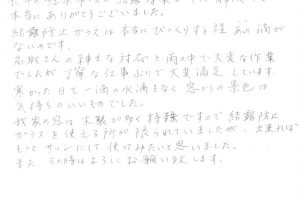 本当にありがとうございました。
結露防止ガラスは本当にびっくりする程 水滴が
ないのです。
名取さんの紳士な対応と雨の中で大変な作業
でしたが丁寧な仕事ぶりで大変満足しています。
寒かった日も一滴の水滴もなく窓からの景色は
気持ちのいいものでした。
我家の窓は木製が多く特殊ですので結露防止
ガラスを使える所が限られていましたが、出来れば
もっとサッシにして使ってみたいと思いました。
また その時はよろしくお願い致します。